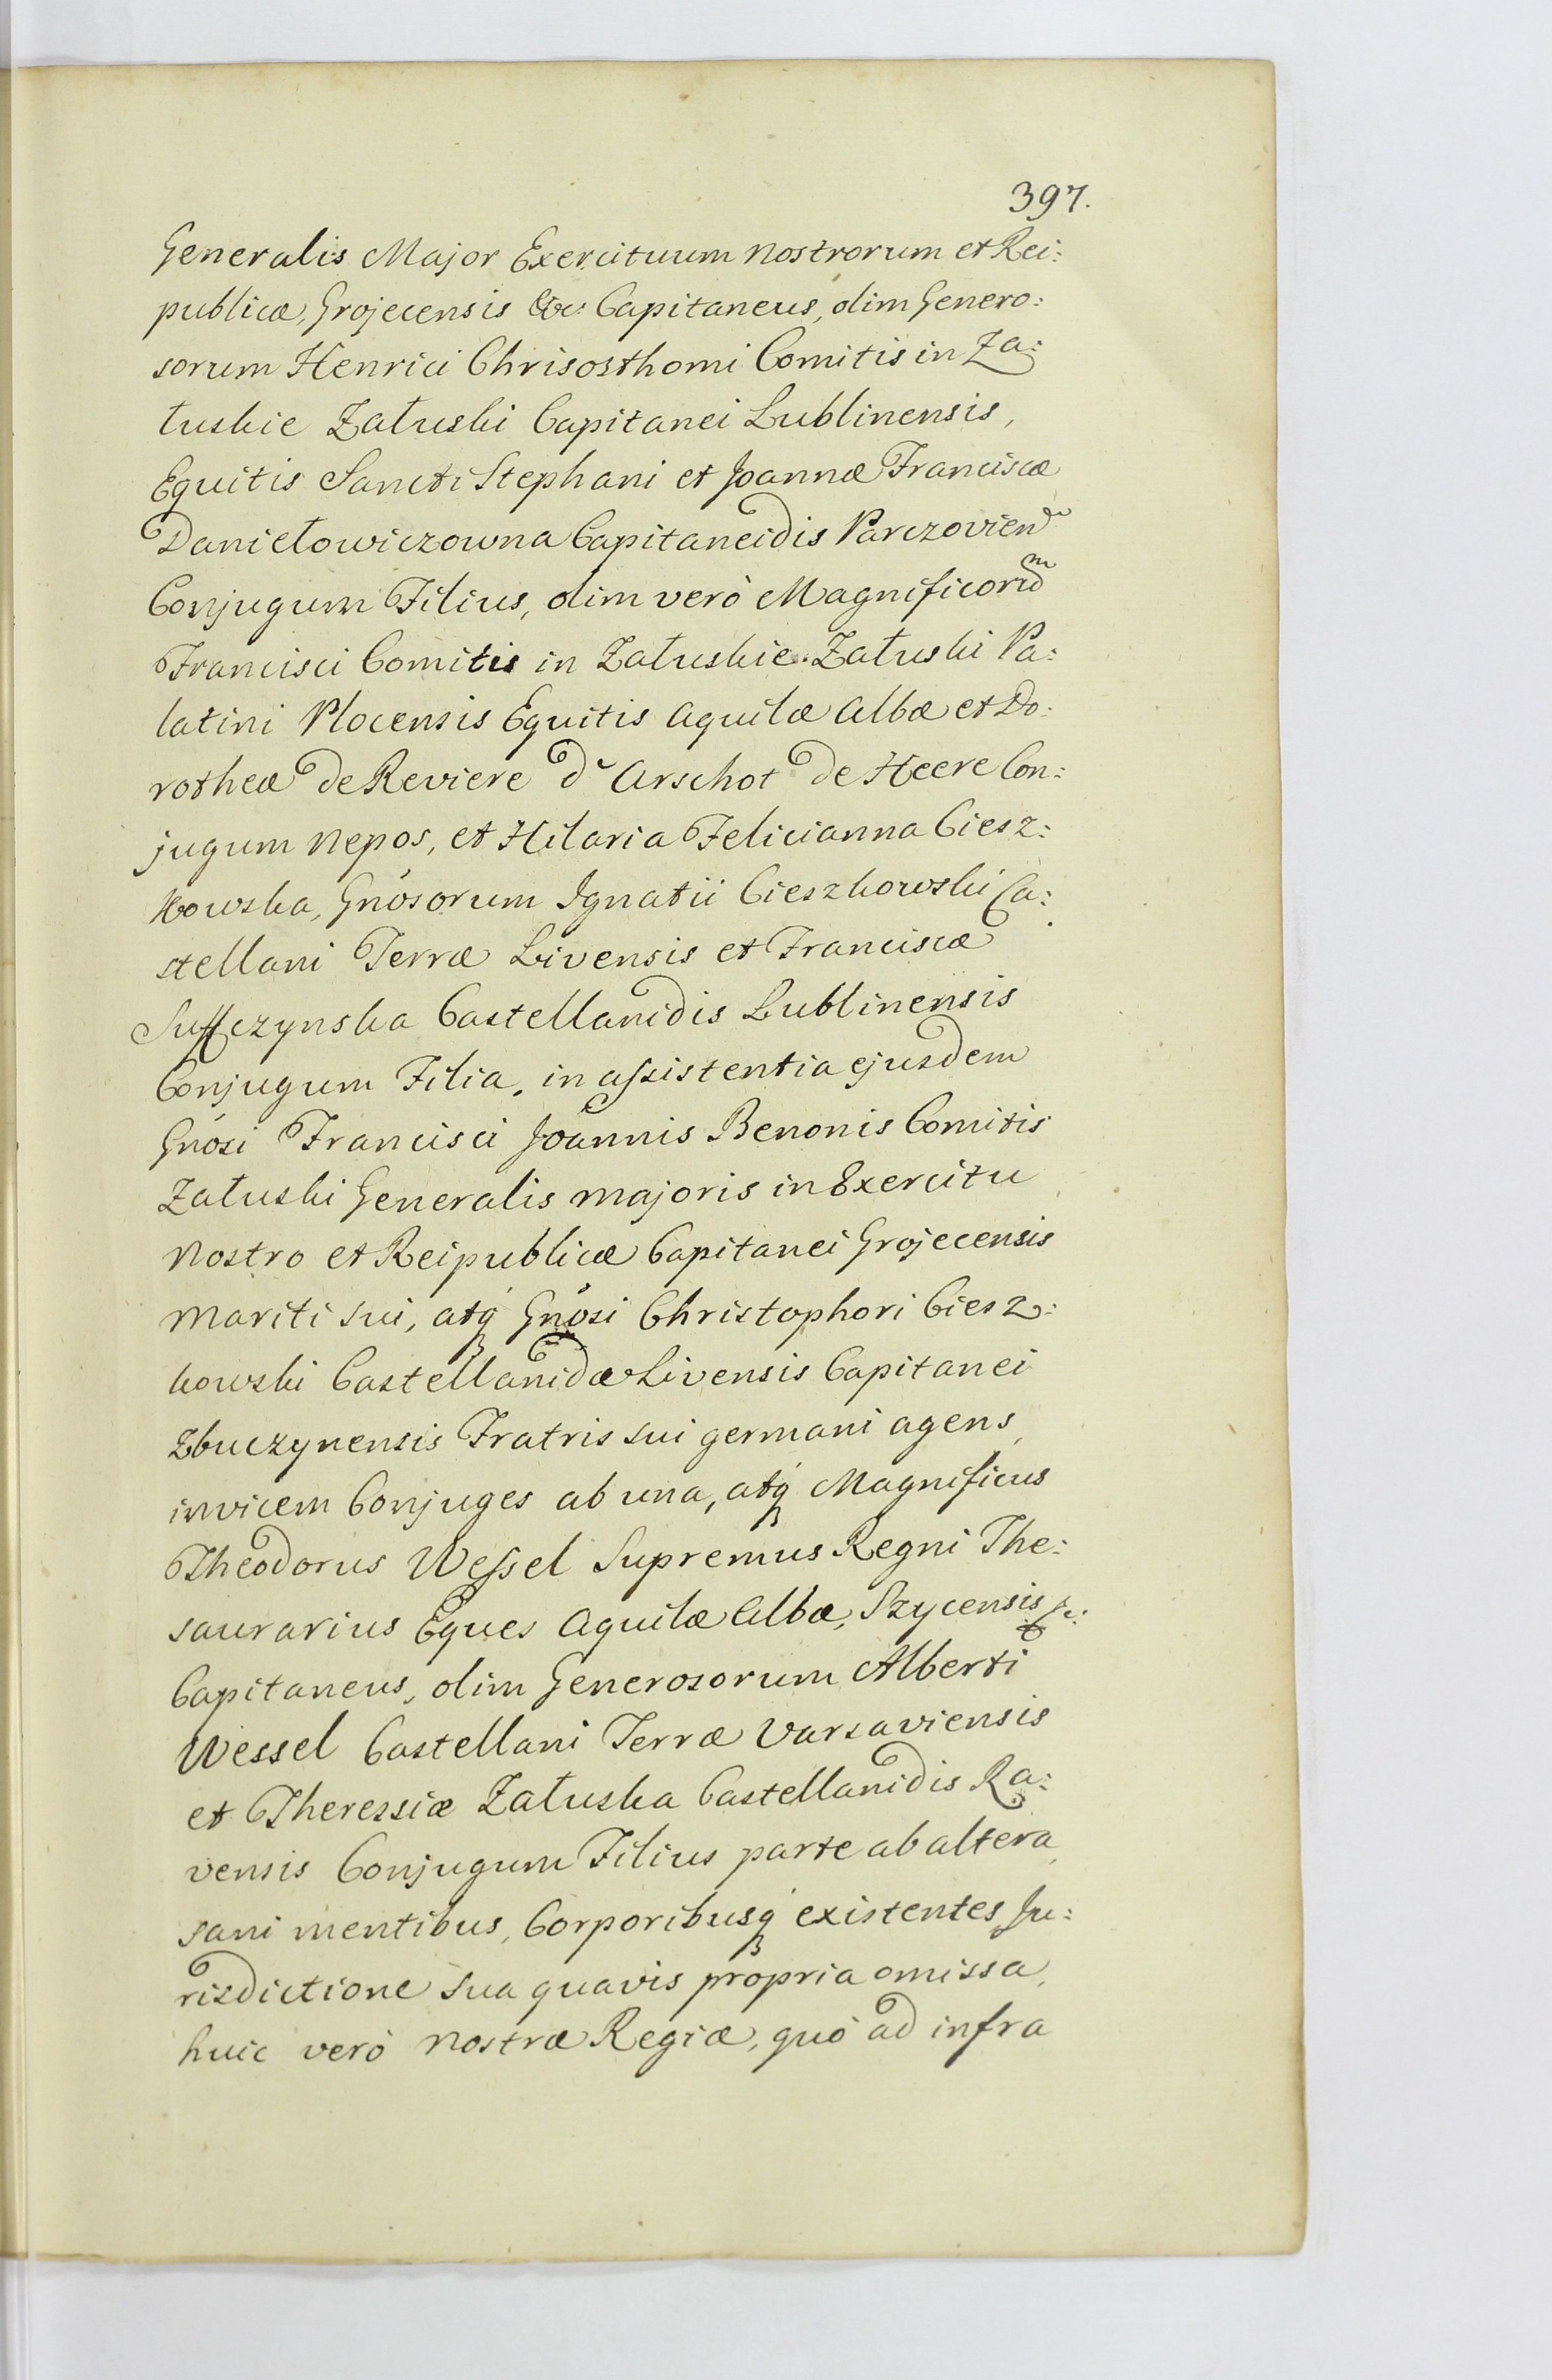 397.
Generalis Major Exercituum nostrorum et Rei:
publicæ, Grojecensis &c: Capitaneus, olim Genero:
sorum Henrici Chrisosthomi Comitis in Za:
łuskie Załuski Capitanei Lublinensis,
Equitis Sancti Stephani et Joannæ Franciscæ
Daniełowiczowna Capitaneidis Parczovien
Conjugum Filius, olim verò Magnificorum
Francisci Comitis in Załuskie Załuski Pa:
latini Plocensis Equitis Aquilæ Albæ et Do:
rotheæ de Reviere d'Arschot de Heere Con:
jugum Nepos, et Hilaria Felicianna Ciesz:
kowska, Gnósorum Ignatii Cieszkowski Ca:
stellani Terræ Livensis et Franciscæ
Suffczynska Castellanidis Lublinensis
Conjugum Filia, in assistentia ejusdem
Gnósi Francisci Joannis Benonis Comitis
Załuski Generalis majoris in Exercitu
Nostro et Reipublicæ Capitanei Grojecensis
Mariti sui, atq́ Gnósi Christophori Ciesz:
kowski Castellanidæ Livensis Capitanei
Zbuczynensis Fratris sui germani agens,
invicem Conjuges ab una, atq́ Magnificus
Theodorus Wessel Supremus Regni The:
saurarius Eques Aquilæ Albæ, Szycensis &c:
Capitaneus, olim Generosorum Alberti
Wessel Castellani Terræ Varsaviensis
et Theressiæ Załuska Castellanidis Ra:
vensis Conjugum Filius parte ab altera,
sani mentibus, Corporibusq́ existentes Ju:
risdictione sua quavis propria omissa,
huic verò Nostræ Regiæ, quò ad infra